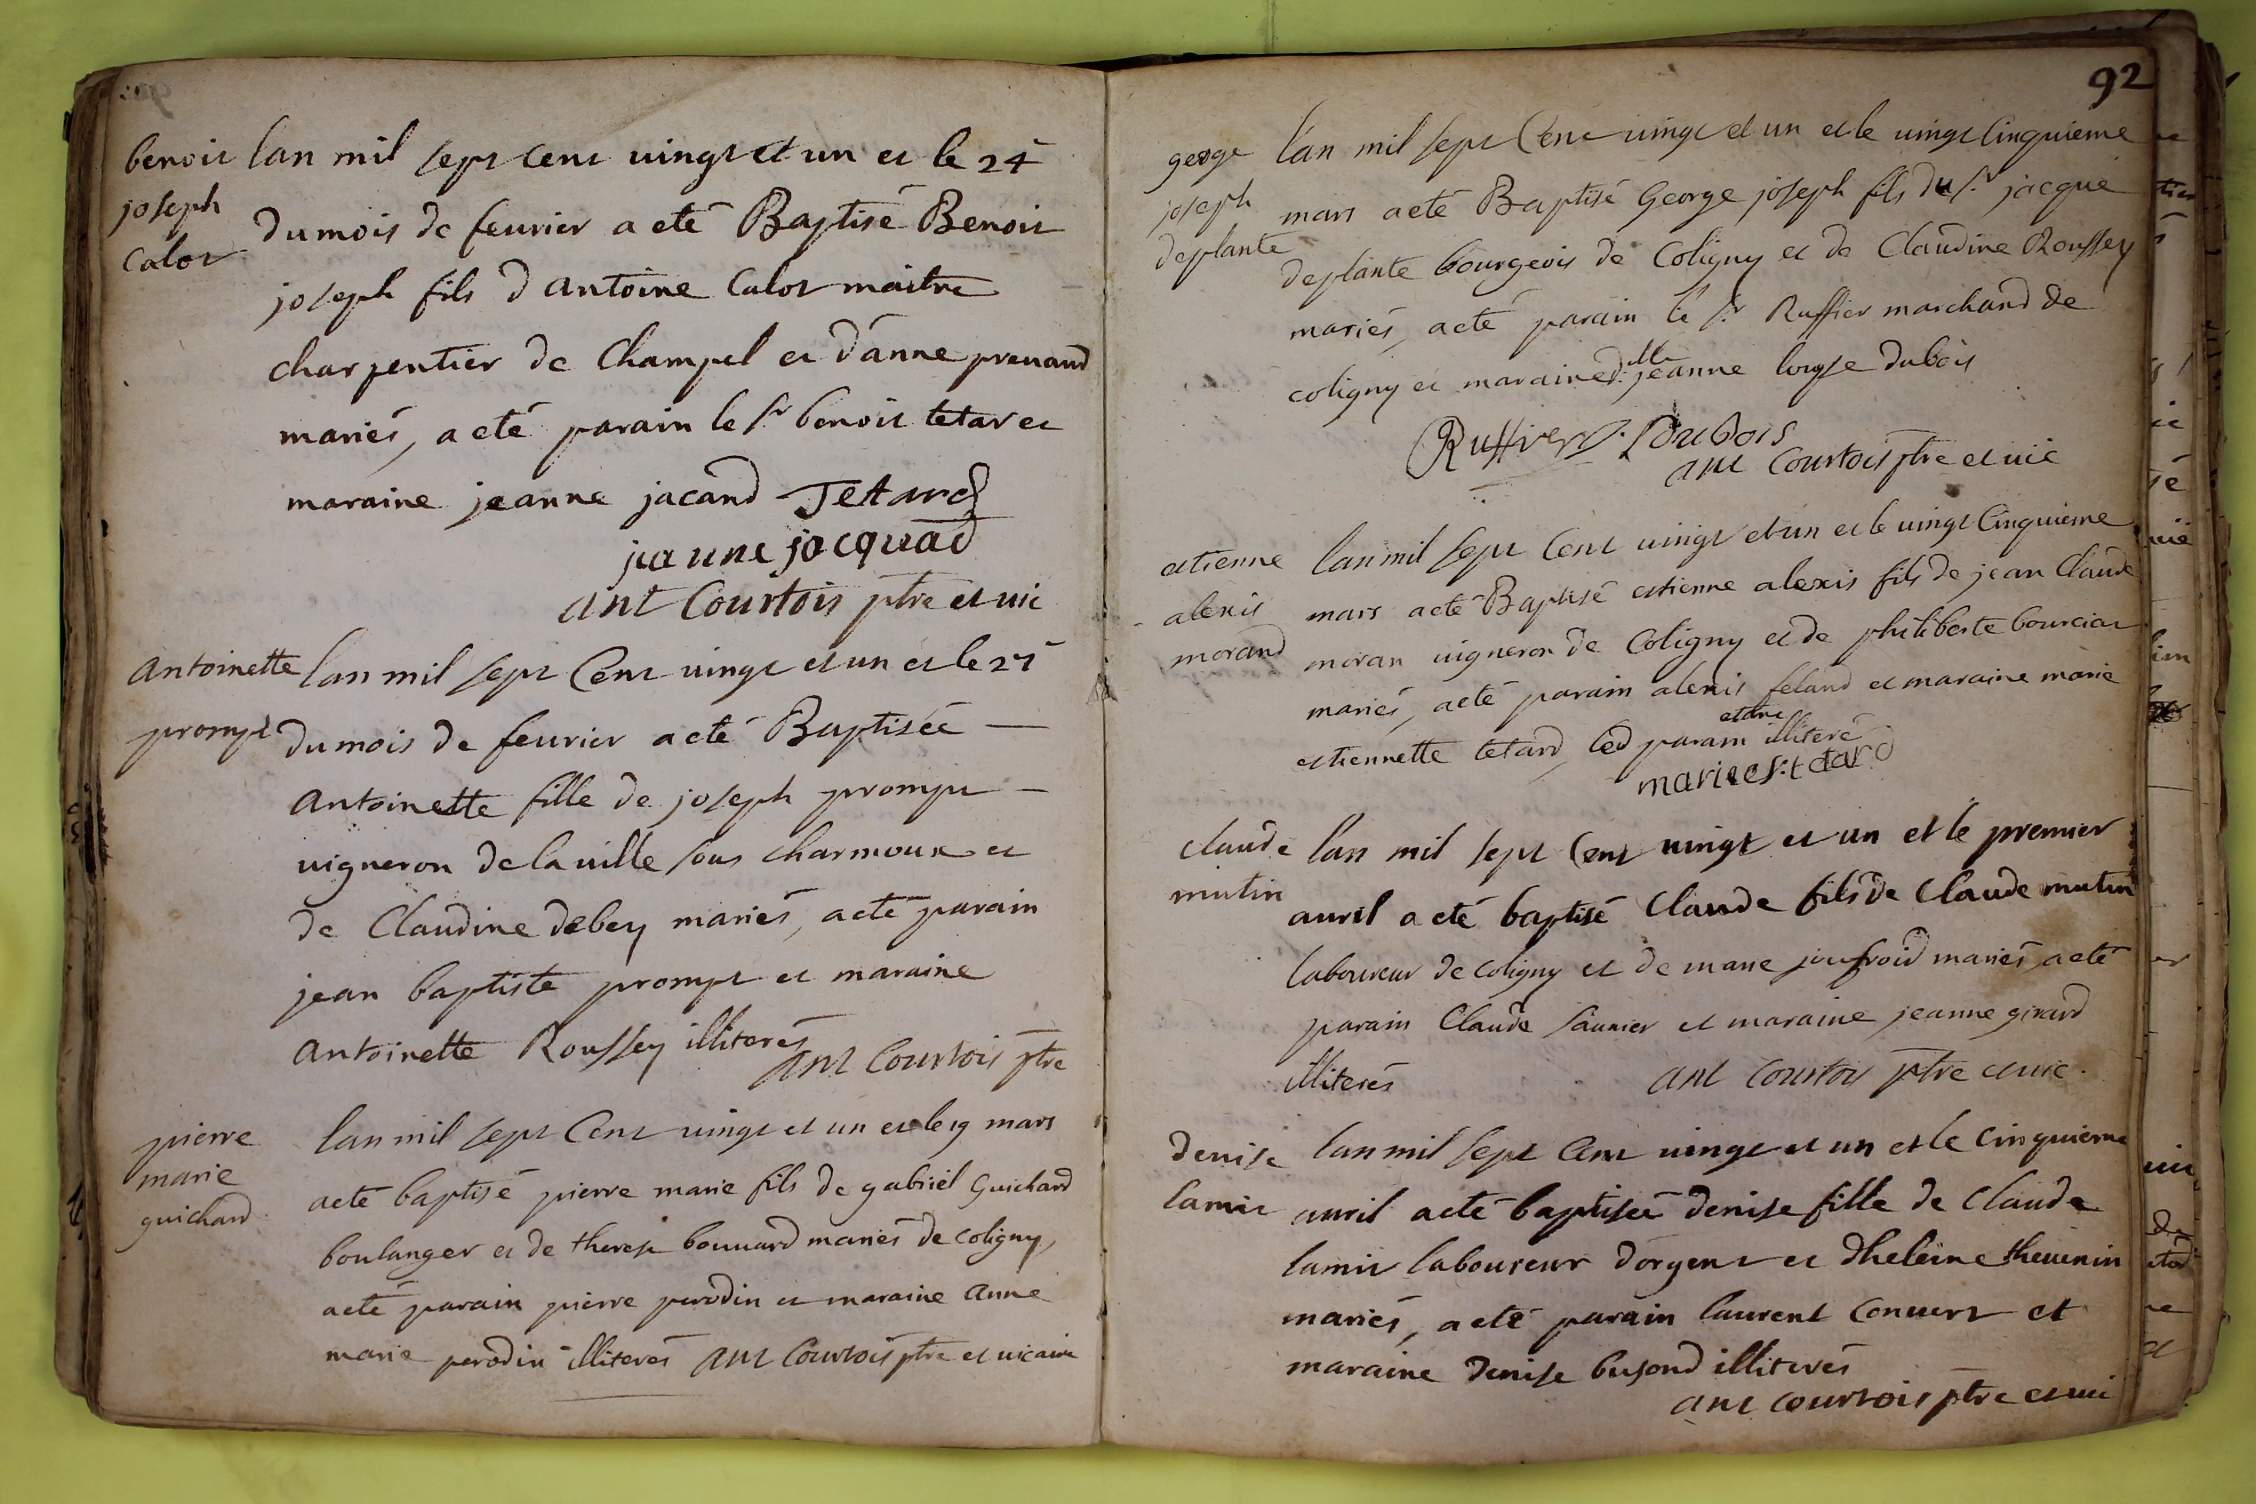 benoit
joseph
Calot
lan mil sept cent vingt et un et le 24e
du mois de feurier a eté Baptisé Benoit
joseph fils d antoine Calot maitre
charpentier de Champel et d'anne prenand
mariés, a eté parain le Sr benoit tetar et
maraine jeanne jacand Tetard
jeanne jacquad
ant Courtois ptre et vic
Antoinette
prompt
lan mil sept Cent vingt et un et le
du mois de feurier a eté Baptiseé
Antoinette fille de joseph prompt
vigneron de la ville sous charmoux et
de Claudine debey mariés, a eté parain
jean baptiste prompt et maraine
Antoinette Roussey illiterés
ant Courtois ptre
pierre
marie
guichard
lan mil sept Cent vingt et un et le 19 mars
a eté baptisé pierre marie fils de gabriel Guichard
boulanger et de therese bouuard mariés de Coligny,
a eté parain pierre perodin et maraine anne
marie perodin illiterés ant Courtois ptre et vicaire
92
george
joseph
deplante
l'an mil sept Cent vingt et un et le vingt Cinquieme
mars a eté Baptisé George joseph fils du Sr jacque
deplante bourgeois de Coligny et de Claudine Roussey
mariés, a eté parain le Sr Ruffier marchand de
coligny et maraine delle jeanne loyse dubois
Ruffier J. L dubois
ant Courtois ptre et vic
estienne
alexis
morand
lan mil sept Cent vingt et un et le vingt Cinquieme
mars a eté Baptisé estienne alexis fils de jean Claude
moran vigneron de Coligny et de philiberte bourciat
mariés, a eté parain alexis feland et maraine marie
estiennette tetard, led parain illiteré
marie est tetard
claude
mutin
l'an mil sept Cent vingt et un et le premier
auril a eté baptisé Claude fils de Claude mutin
laboureur de coligny et de marie joufroid mariés, a eté
parain Claude saunier et maraine jeanne girard
illiterés
ant Courtois ptre et vic.
Denise
lamit
lan mil sept Cent vingt et un et le Cinquieme
auril a eté baptiseé denise fille de Claude
lamit laboureur dorgent et dheleine theuenin
mariés, a eté parain laurent Conuert et
maraine denise busond illiterés
ant courtois ptre et vic